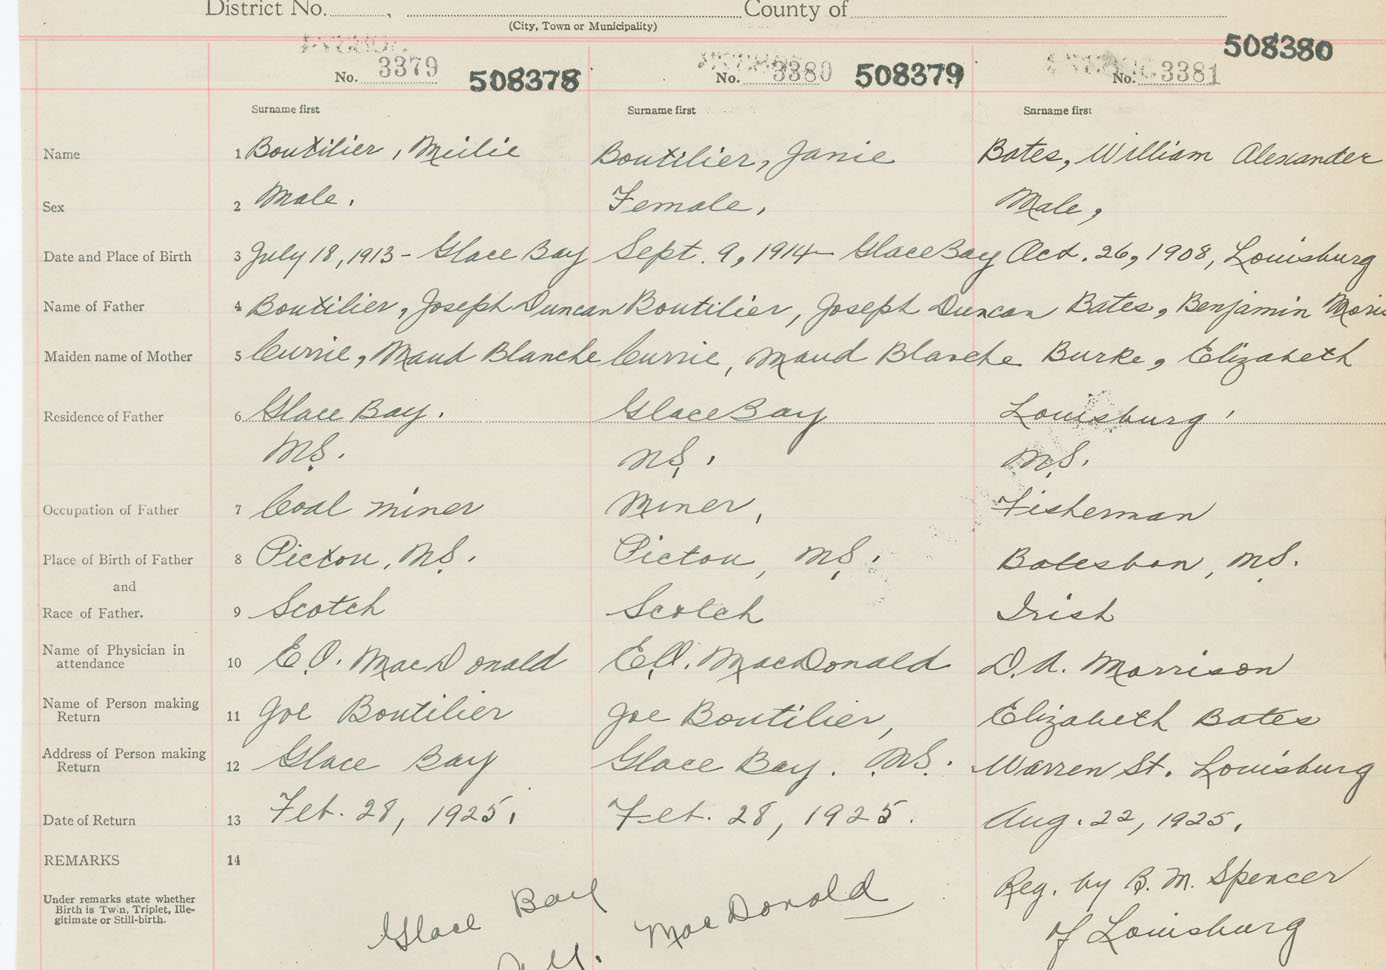 District No. , County of
(City, Town or Municipality)
508380
No. 3379 508378 No. 3380 508379 No. 3381
Surname first Surname first Surname first
Name 1 Boutilier, Meilie Boutilier, Janie Bates, William Alexander
Sex 2 Male. Female, Male,
Date and Place of Birth 3 July 18, 1913 - Glace Bay Sept. 9, 1914 - Glace Bay Oct. 26, 1908, Louisburg
Name of Father 4 Boutilier, Joseph Duncan Boutilier, Joseph Duncan Bates, Benjamin
Maiden name of Mother 5 Currie, Maud Blanche Currie, Maud Blanche Burke, Elizabeth
Residence of Father 6 Glace Bay. Glace Bay Louisburg
N.S. N.S. N.S.
Occupation of Father 7 Coal miner Miner, Fisherman
Place of Birth of Father 8 Pictou, N.S. Pictou, N.S. , N.S.
and
Race of Father. 9 Scotch Scotch Irish
Name of Physician in
attendance 10 E.O. MacDonald E.O. MacDonald D.A. Morrison
Name of Person making
Return 11 Joe Boutilier Joe Boutilier, Elizabeth Bates
Address of Person making
Return 12 Glace Bay Glace Bay. N.S. Warren St. Louisburg
Date of Return 13 Feb. 28, 1925. Feb. 28, 1925. Aug. 22, 1925.
REMARKS 14
Under remarks state whether
Birth is Twin, Triplet, Ille-
gitimate or Still-birth.
Reg. by B. M. Spencer
of Louisburg
Glace Bay MacDonald